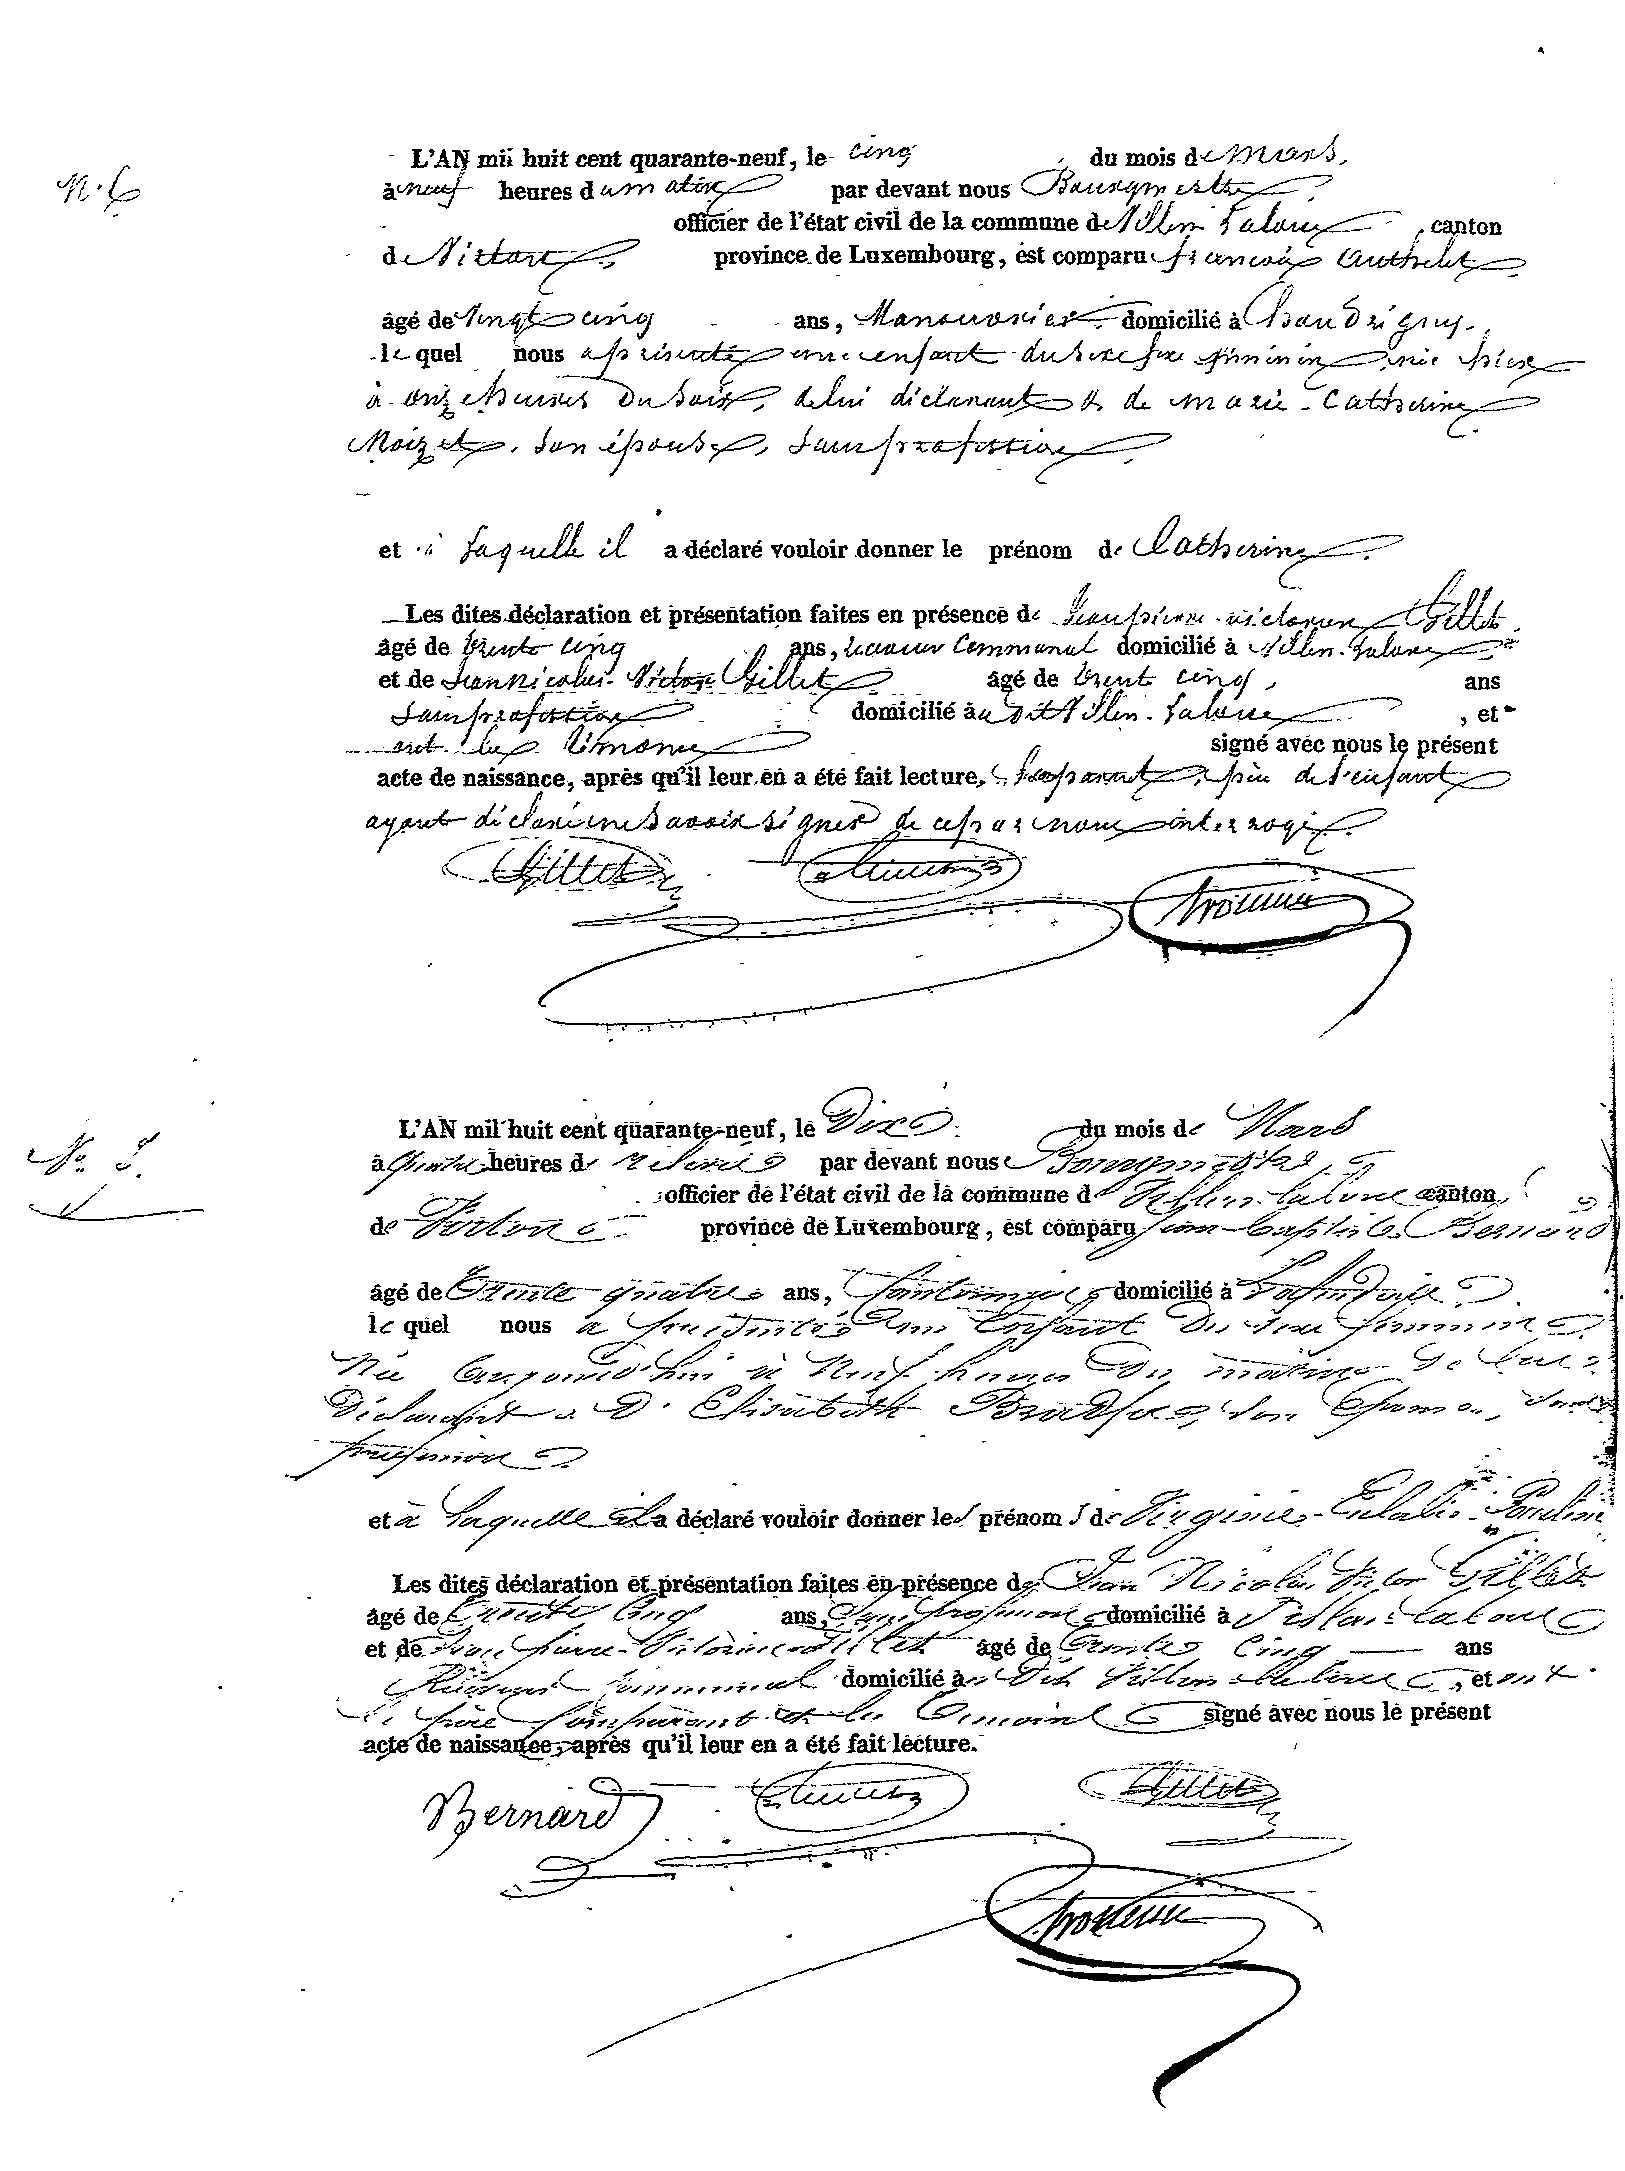 N. 6
L'AN mil huit cent quarante-neuf, le cinq du mois de Mars,
à neuf heures du matin par devant nous Bourgmestre
officier de l'état civil de la commune de Villers Laloue, canton
de Virton, province de Luxembourg, est comparu françois Authelet
âgé de Vingt cinq ans, Manouvrier domicilié à
le quel nous a présenté une enfant du sexe féminin, née hier
à onze heures Du Soir, de lui déclarant & de marie-Catherine
Moizet, Son épouse, Sans profession.
et à laquelle il a déclaré vouloir donner le prénom de Catherine.
Les dites déclaration et présentation faites en présence de Jean pierre victorien Gillet
âgé de trente cinq ans, receveur Communal domicilié à Villers-Laloue
et de Jean Nicolas-Victor Gillet âgé de trente cinq, ans
Sans profession domicilié au Dit Villers-Laloue, et
ont les témoins signé avec nous le présent
acte de naissance, après qu'il leur en a été fait lecture, le Comparant, père de l'enfant
ayant déclaré ne Savoir signer de ce par nous interrogé.
Gillet
L'AN mil huit cent quarante-neuf, le Dix du mois de Mars
à quatre heures de relevée par devant nous Bourgmestre
officier de l'état civil de la commune de Villers-Laloue canton
de Virton province de Luxembourg, est comparu jean-baptiste Bernard
âgé de Trente quatre ans, domicilié à
le quel nous a présenté un Enfant Du sexe féminin
Née aujourd'hui à Neuf heures Du matin De lui
Déclarant & D'Elisabeth son Epouse, Sans
profession
et à Laquelle il a déclaré vouloir donner les prénoms de Virginie-Eulalie-Pauline
Les dites déclaration et présentation faites en présence de Jean Nicolas Victor Gillet
âgé de Trente Cinq ans, Sans profession domicilié à Villers-laloue
et de Jean pierre-Victorien Gillet âgé de Trente Cinq ans
Receveur Communal domicilié au Dit Villers-Laloue, et ont
le père Comparant et les Témoins signé avec nous le présent
acte de naissance, après qu'il leur en a été fait lecture.
Bernard Gillet